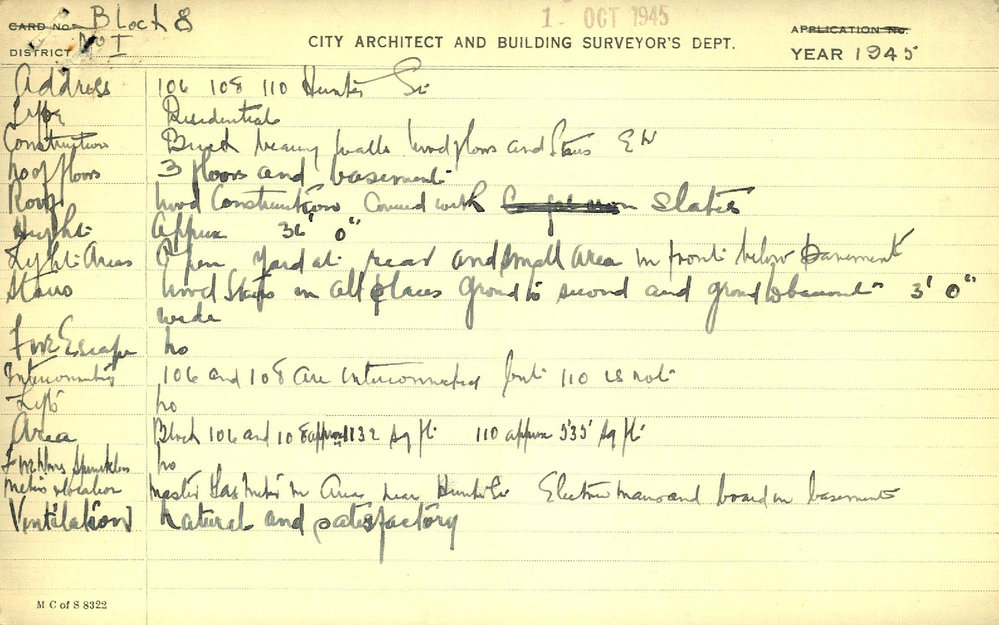 CARD No. Block 8
1 - OCT 1945
APPLICATION No.
DISTRICT No I
CITY ARCHITECT AND BUILDING SURVEYOR'S DEPT.
YEAR 1945
Address 106 108 110 Hunter St
Type Residentials
Construction Brick bearing walls wood floors and Stairs E W
No of floors 3 floors and basement
Roof Wood Construction Covered with Slates
Height Approx 36' 0"
Light Areas Open yard at rear and small area in front below basement
Stairs Wood Stairs in all places Ground to second and ground to basement 3' 0"
wide
Fire Escape no
Interconnecting 106 and 108 are interconnected but 110 is not
Lift no
Area Block 106 and 108 approx 1132 sq ft 110 approx 535 sq ft
Sprinklers no
Meters location Master Gas Meter in Area near Hunter St Electric mains and board in basement
Ventilation Natural and satisfactory
M C of S 8322